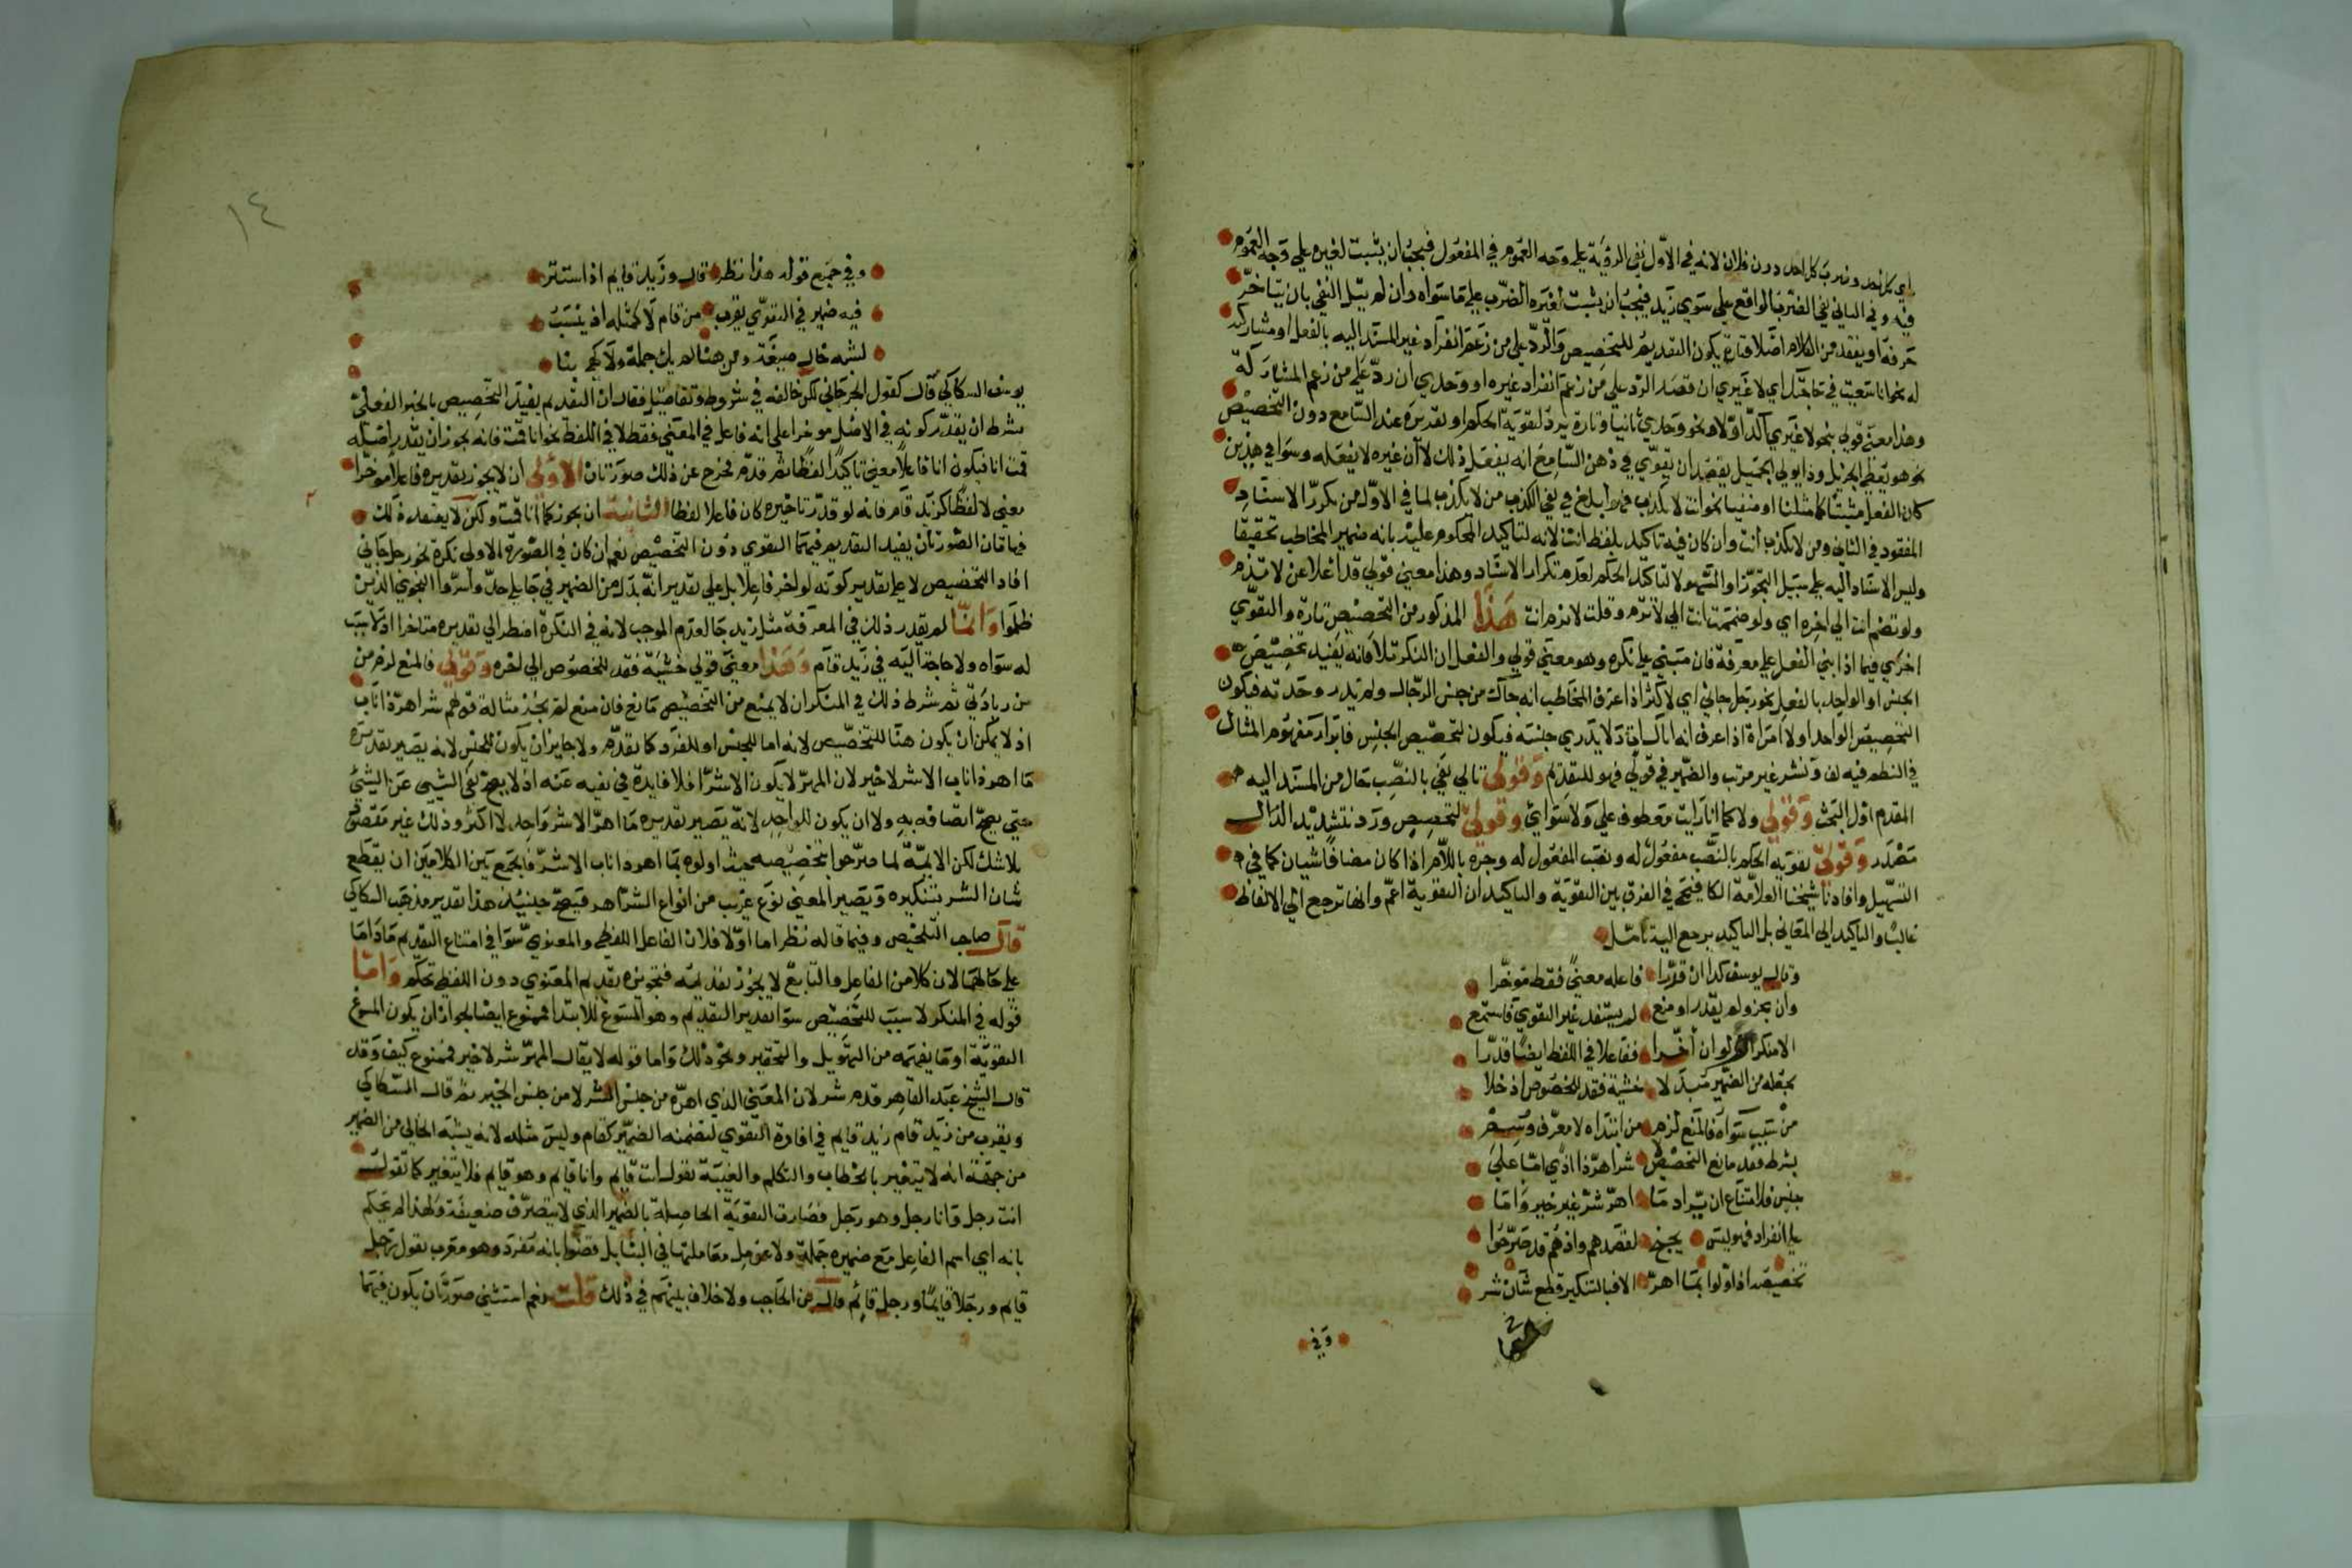 اي كل احد وضرب كل احد دون فلان لانه في الاول نفي الرؤية على وجه العموم في المفعول فيجب ان يثبت لغيره على وجه العموم
فيه وفي الثاني نفي الضرب الواقع على سوى زيد فيجب ان يثبت لغيره الضرب على ما سواه وان لم يتل النفي بان يتاخر
حرفه او يفقد من الكلام اصلا فتارة يكون التقديم للتخصيص والرد على من زعم انفراد غير المسند اليه بالفعل او مشاركته
له نحو انا سعيت في حاجتك اي لا غيري ان قصد الرد على من زعم انفراد غيره او وحدي ان رد على من زعم المشاركة
وهذا معنى قولي بنحو لا غيري اكد اولا ونحو وحدي ثانيا وتارة يرد لتقوية الحكم او تقديره عند السامع دون التخصيص
نحو هو يعطي الجزيل وذا يولي الجميل يقصد ان يقوي في ذهن السامع انه يفعل ذلك لا ان غيره لا يفعله وسوا في هذين
كان الفعل مثبتا كما مثلنا او منفيا نحو انت لا تكذب فهو ابلغ في نفي الكذب من لا تكذب لما في الاول من تكرر الاسناد
المفقود في الثاني ومن لا تكذب انت وان كان فيه تاكيد بلفظ انت لانه لتاكيد المحكوم عليه بانه ضمير المخاطب تحقيقا
وليس الاسناد اليه على سبيل التجوز او السهو لا لتاكيد الحكم لعدم تكرار الاسناد وهذا معنى قولي قد اعلا عن لا تذم
ولو تضم انت الى اخره اي ولو ضممت انت الى لا تذم وقلت لا تذم انت هذا المذكور من التخصيص تارة والتقوي
اخرى فيما اذا بني الفعل على معرفة فان مبني على نكرة وهو معنى قولي والفعل ان النكر تلا فانه يفيد تخصيص
الجنس او الواحد بالفعل نحو رجل جاني اي لا اكثر اذا عرف المخاطب انه جاك من جنس الرجال ولم يدر وحدته فيكون
التخصيص الواحد او لا امراة اذا عرف انه اتاك ات ولا يدري جنسه فيكون لتخصيص الجنس فابراد مفهوم المثال
في النظم فيه لف ونشر غير مرتب والضمير في قولي فهو للتقديم وقولي تالي نفي بالنصب حال من المسند اليه
المقدم اول البحث وقولي ولا كما انا رايت معطوف على ولا سواي وقولي لتخصيص ورد بتشديد الدال
مصدر وقولي تقويه الحكم بالنصب مفعول له ونصب المفعول له وجره باللام اذا كان مضافا سيان كما في
التسهيل وافادنا شيخنا العلامة الكافيجي في الفرق بين التقوية والتاكيد ان التقوية اعم وانها ترجع الى الالفاظ
غالبا والتاكيد الى المعاني بل التاكيد يرجع اليه تامل
وقال يوسف كذا ان قدرا فاعله معنى فقط موخرا
وان يجز ولم يقدر او منع لم يستفد غير التقوي فاستمع
الا منكرا ولو ان أخرا ففاعلا في اللفظ ايضا قدرا
بجعله من الضمير مبدلا خشية فقد للخصوص اذ خلا
من سبب سواه فالمنع لزم من ابتداه لا معرف وسم
بشرط فقد مانع التخصيص شر اهر ذا اذي اما على
جنس فلامتناع ان يراد ما اهر شر غير خير واما
على انفراد فهو ليس يجنح لقصدهم واذ هم قد صرحوا
تخصيصه اذ اولوا بما اهر الا فبالتنكير قطع شان شر
وفي
١٤
وفي جميع قوله هذا نظر قال وزيد قايم اذ استتر
فيه ضمير في التقوي يقرب من قام لا كمثله اذ ينسب
لشبه خال صيغة ومن هنا لم يك جملة ولا كهي بنا
يوسف السكاكي قال كقول الجرجاني لكن خالفه في شروط وتفاصيل فقال ان التقديم يفيد التخصيص بالخبر الفعلي
بشرط ان يقدر كونه في الاصل موخرا على انه فاعل في المعنى فقط لا في اللفظ نحو انا قمت فانه يجوز ان يقدر اصله
قمت انا فيكون انا فاعلا معنى تاكيدا لفظا ثم قدم فخرج عن ذلك صورتان الاولى ان لا يجوز تقديره فاعلا موخرا
معنى لا لفظا كزيد قام فانه لو قدر تاخيره كان فاعلا لفظا الثانية ان يجوز كما انا قمت ولكن لا يعتقد ذلك
فهاتان الصورتان يفيد التقديم فيهما التقوي دون التخصيص نعم ان كان في الصورة الاولى نكرة نحو رجل جاني
افاد التخصيص لا على تقدير كونه لو اخر فاعلا بل على تقدير انه بدل من الضمير في جا على حد وأسروا النجوى الذين
ظلموا وانما لم يقدر ذلك في المعرفة مثل زيد جا لعدم الموجب لانه في النكرة اضطر الى تقديره متاخرا اذ لا سبب
له سواه ولا حاجة اليه في زيد قام وهذا معنى قولي خشية فقد للخصوص الى اخره وقولي فالمنع لزم من
من زيادتي ثم شرط ذلك في المنكر ان لا يمنع من التخصيص مانع فان منع لم يجز مثاله قولهم شر اهر ذا ناب
اذ لا يمكن ان يكون هنا للتخصيص لانه اما للجنس او للفرد كما تقدم ولا جايز ان يكون للجنس لانه يصير تقديره
ما اهر ذا ناب الا شر لا خير لان المهر لا يكون الا شرا فلا فايدة في نفيه عنه اذ لا يصح نفي الشيى عن الشيئ
حتى يصح اتصافه به ولا ان يكون للواحد لانه يصير تقديره ما اهر الا شر واحد لا اكثر وذلك غير مقصود
بلا شك لكن الايمة لما صرحوا بتخصيصه حيث اولوه بما اهر ذا ناب الا شر فالجمع بين الكلامين ان يقطع
شان الشر بتنكيره ويصير المعنى نوع غريب من انواع الشر اهر فيصح حينيذ هذا تقدير مذهب السكاكي
قال صاحب التلخيص وفيما قاله نظر اما اولا فلان الفاعل اللفظي والمعنوي سوا في امتناع التقديم ما داما
على حالهما لان كلا من الفاعل والتابع لا يجوز تقديمه فتجويزه تقديم المعنوي دون اللفظي تحكم واما
قوله في المنكر لا سبب للتخصيص سوا تقدير التقديم وهو المسوغ للابتدا فممنوع ايضا لجواز ان يكون المسوغ
التقوية او ما يفهمه من التهويل والتحقير ونحو ذلك واما قوله لا يقال المهر شر لا خير فممنوع كيف وقد
قال الشيخ عبد القاهر قدم شر لان المعنى الذي اهره من جنس الشر لا من جنس الخير ثم قال السكاكي
ويقرب من زيد قام زيد قايم في افادة التقوي لتضمنه الضمير كقام وليس مثله لانه يشبه الخالي من الضمير
من جهة انه لا يتغير بالخطاب والتكلم والغيبة تقول انت قايم وانا قايم وهو قايم فلا يتغير كما تقول
انت رجل وانا رجل وهو رجل فصارت التقوية الحاصلة بالضمير الذي لا يتصرف ضعيفة ولهذا لم يحكم
بانه اي اسم الفاعل مع ضميره جملة ولا عومل معاملتها في البنا بل قضوا بانه مفرد وهو معرب تقول رجل
قايم ورجلا قايما ورجل قائم قال ابن الحاجب ولا خلاف بينهم في ذلك قلت نعم استثني صورتان يكون فيهما